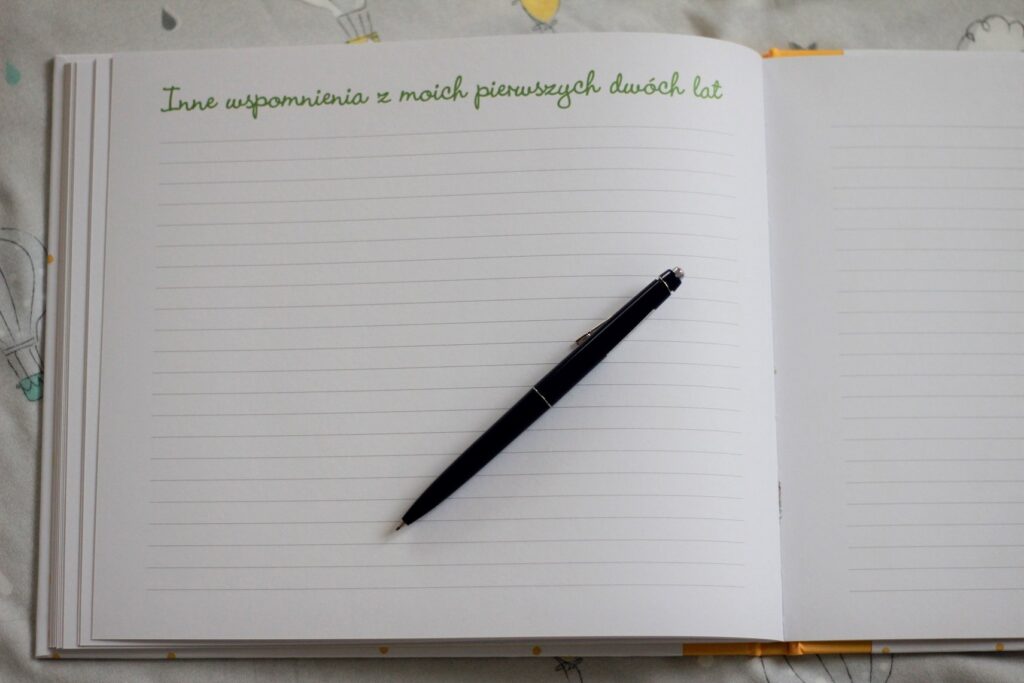 Inne wspomnienia z moich pierwszych dwóch lat